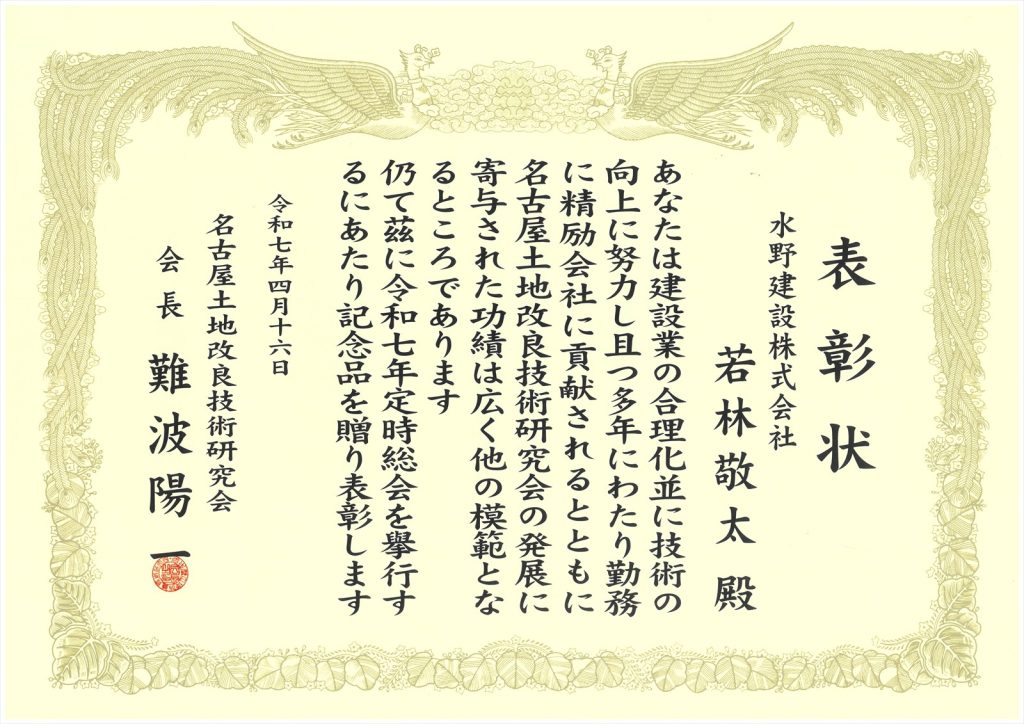 表彰状
水野建設株式会社
若林敬太殿
あなたは建設業の合理化並に技術の
向上に努力し且つ多年にわたり勤務
に精励会社に貢献されるとともに
名古屋土地改良技術研究会の発展に
寄与された功績は広く他の模範とな
るところであります
仍て茲に令和七年定時総会を擧行す
るにあたり記念品を贈り表彰します
令和七年四月十六日
名古屋土地改良技術研究会
会長 難波陽一